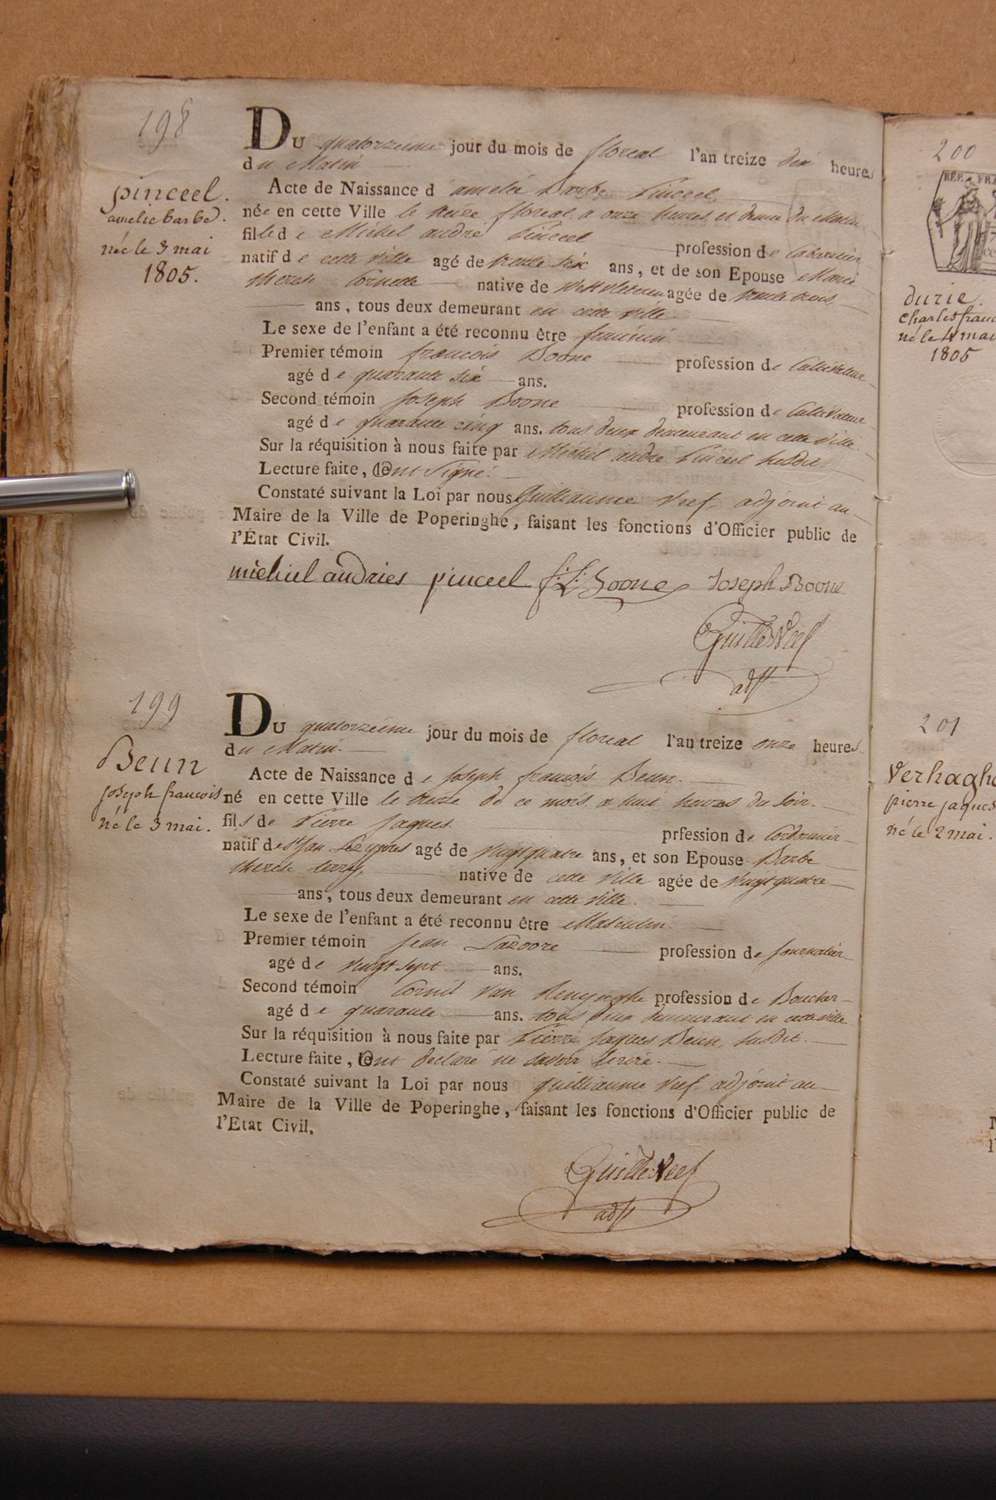 198
pinceel.
amelie barbe.
née le 3 mai
1805.
Du quatorzieme jour du mois de floreal l'an treize dix heures
du Matin
Acte de Naissance d'amelie Barbe Pinceel
née en cette Ville le treize floreal, a onze heures et demie du Matin
fille de Michel andré Pinceel profession de Cabaretier
natif de cette ville agé de trente six ans, et de son Epouse Marie
therese Cornette native de Westvleteren agée de trente trois
ans, tous deux demeurant en cette ville.
Le sexe de l'enfant a été reconnu être feminin
Premier témoin francois Boone profession de Cultivateur
agé de quarante six ans.
Second témoin Joseph Boone profession de Cultivateur
agé de quarante cinq ans. tous deux demeurant en cette ville
Sur la réquisition à nous faite par Michel andré Pinceel susdit
Lecture faite, ont Signé.
Constaté suivant la Loi par nous Guilliaume Vref adjoint au
Maire de la Ville de Poperinghe, faisant les fonctions d'Officier public de
l'Etat Civil.
michiel andries pinceel f: L: Boone Joseph Boone
adjt
199
Beun
joseph francois
né le 3 mai.
Du quatorzieme jour du mois de floreal l'an treize onze heures
du Matin.
Acte de Naissance de Joseph francois Beun.
né en cette Ville le treize de ce mois, a huit heures du soir.
fils de Pierre Jaques prfession de Cordonnier
natif de agé de vingt quatre ans, et son Epouse Barbe
therese native de cette ville agée de vingt quatre
ans, tous deux demeurant en cette ville.
Le sexe de l'enfant a été reconnu être Masculin.
Premier témoin Jean profession de Journalier
agé de vingt sept ans.
Second témoin Cornil Van Renynghe profession de Boucher
agé de quarante ans. tous deux demeurant en cette ville
Sur la réquisition à nous faite par Pierre Jaques Beun susdit.
Lecture faite, ont declaré ne savoir ecrire.
Constaté suivant la Loi par nous guilliaume Vref adjoint au
Maire de la Ville de Poperinghe, faisant les fonctions d'Officier public de
l'Etat Civil.
adjt
200
RÉP. FRA
durie.
charles franc
né le 4 mai
1805
201
verhaghe
pierre jaques
né le 2 mai.